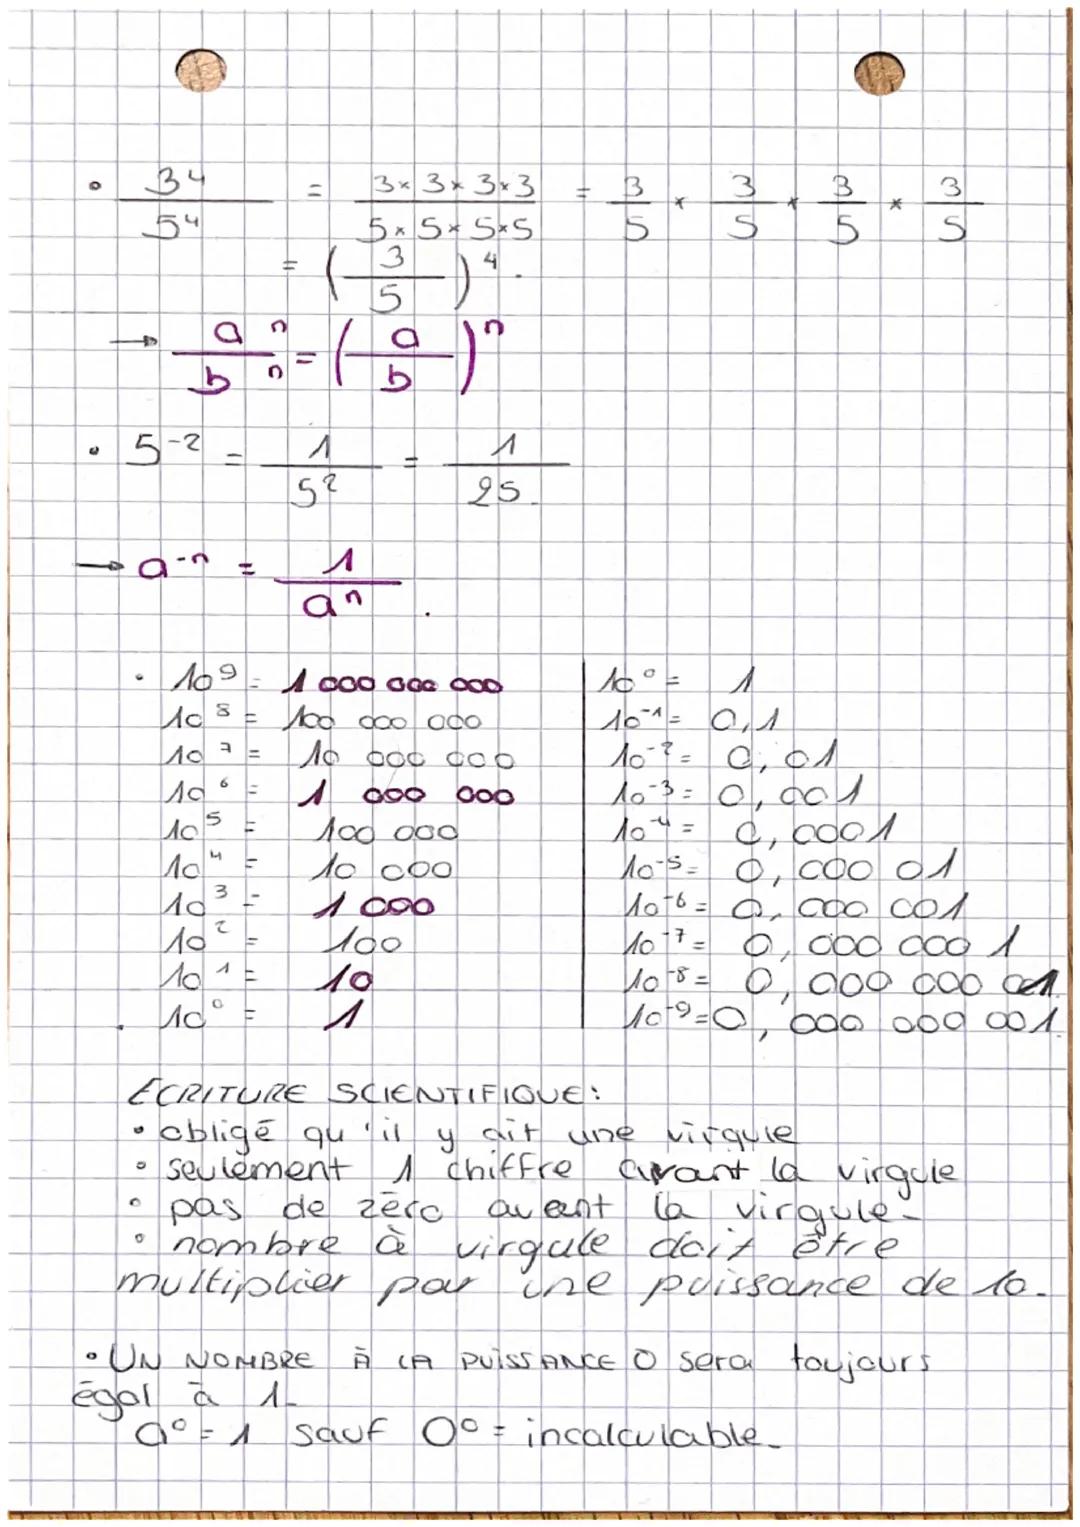 • 3⁴/5⁴ = 3×3×3×3/5×5×5×5 = 3/5 × 3/5 × 3/5 × 3/5
= (3/5)⁴.
→ aⁿ/bⁿ = (a/b)ⁿ
• 5⁻² = 1/5² = 1/25.
→ a⁻ⁿ = 1/aⁿ.
• 10⁹ = 1 000 000 000 | 10⁰ = 1
10⁸ = 100 000 000 | 10⁻¹ = 0,1
10⁷ = 10 000 000 | 10⁻² = 0,01
10⁶ = 1 000 000 | 10⁻³ = 0,001
10⁵ = 100 000 | 10⁻⁴ = 0,0001
10⁴ = 10 000 | 10⁻⁵ = 0,000 01
10³ = 1 000 | 10⁻⁶ = 0,000 001
10² = 100 | 10⁻⁷ = 0,000 000 1
10¹ = 10 | 10⁻⁸ = 0,000 000 01
10⁰ = 1 | 10⁻⁹ = 0,000 000 001
ECRITURE SCIENTIFIQUE:
• obligé qu'il y ait une virgule
• seulement 1 chiffre avant la virgule
• pas de zéro avant la virgule.
• nombre à virgule doit être
multiplier par une puissance de 10.
• UN NOMBRE À LA PUISSANCE 0 sera toujours
égal à 1.
a⁰ = 1 sauf 0⁰ = incalculable.